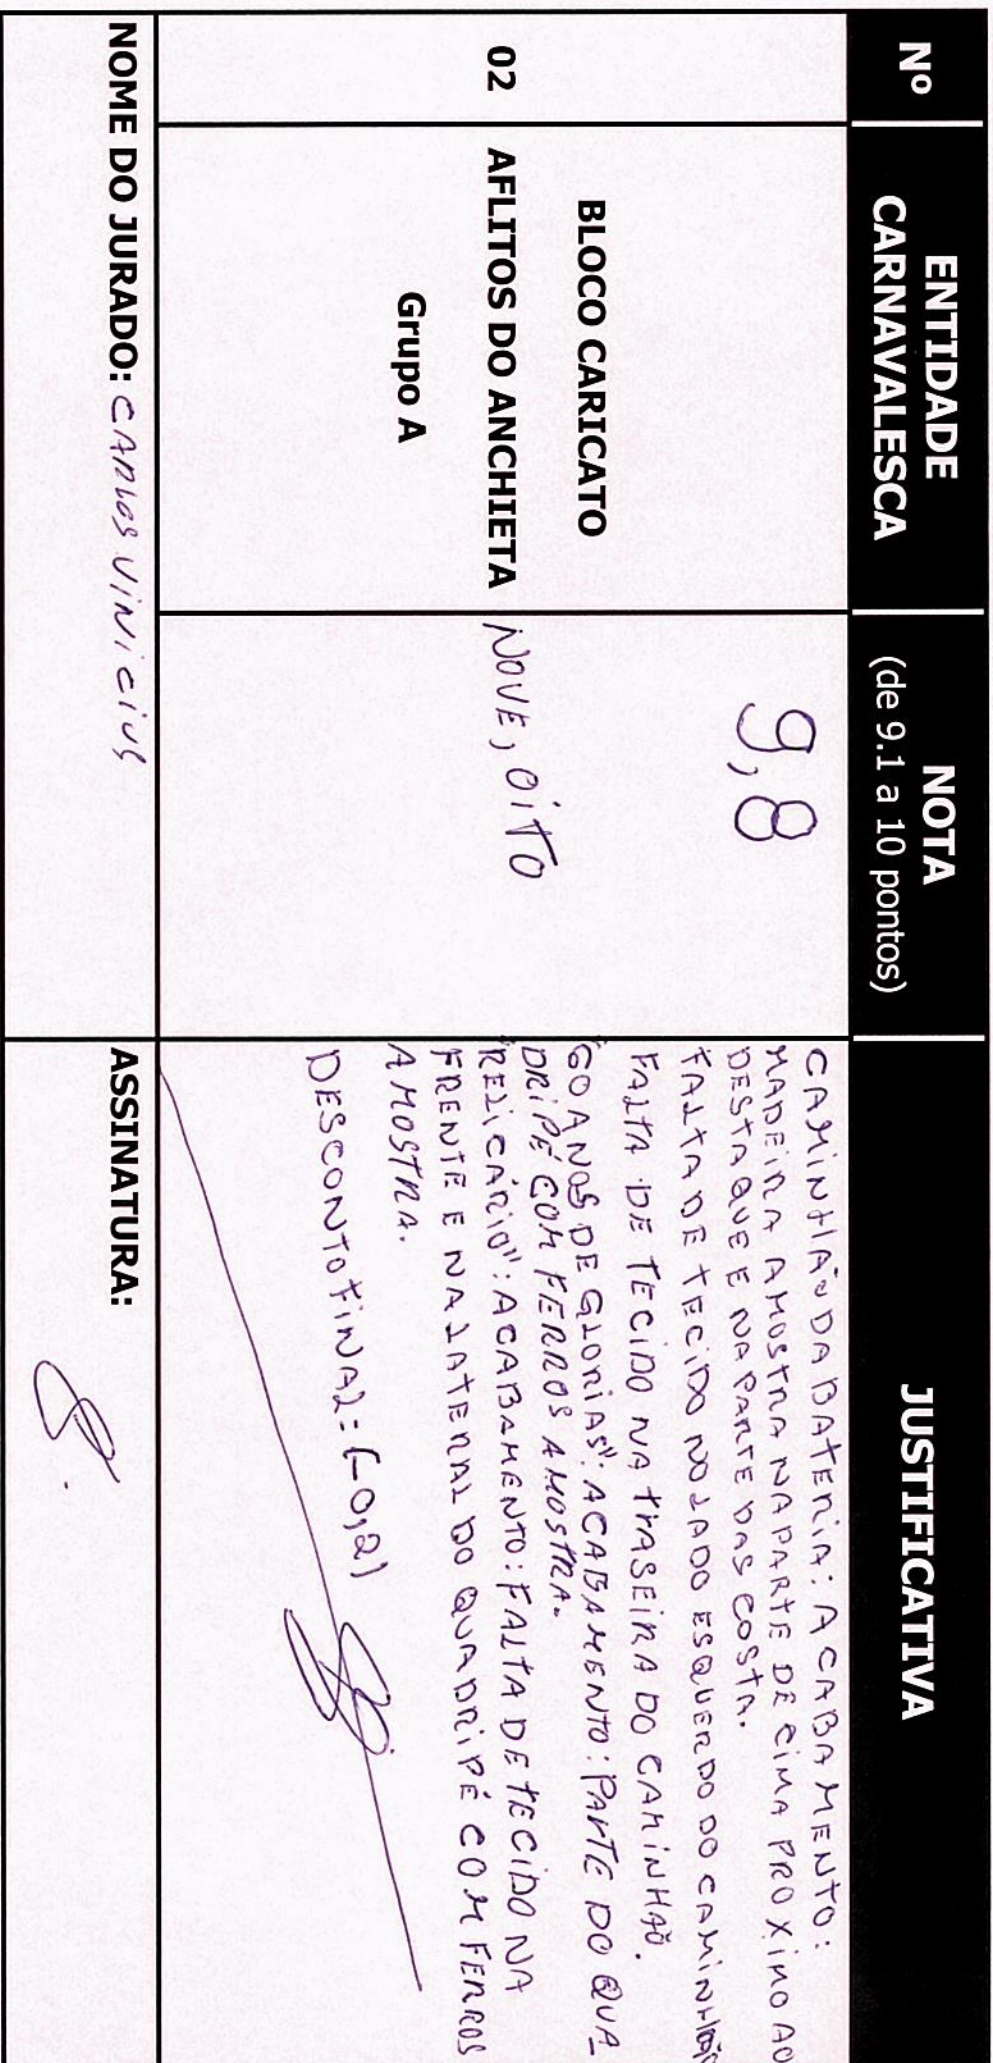 Nº
ENTIDADE
CARNAVALESCA
NOTA
(de 9.1 a 10 pontos)
JUSTIFICATIVA
02
BLOCO CARICATO
AFLITOS DO ANCHIETA
Grupo A
9,8
NOVE, OITO
CAMINHÃO DA BATERIA: ACABAMENTO:
MADEIRA AMOSTRA NA PARTE DE CIMA PROXIMO AO
DESTAQUE E NA PARTE DAS COSTA.
FALTA DE TECIDO NO LADO ESQUERDO DO CAMINHÃO
FALTA DE TECIDO NA TRASEIRA DO CAMINHÃO.
"60 ANOS DE GLORIAS": ACABAMENTO: PARTE DO QUA-
DRIPÉ COM FERROS AMOSTRA.
"RELICÁRIO": ACABAMENTO: FALTA DE TECIDO NA
FRENTE E NA LATERAL DO QUADRIPÉ COM FERROS
AMOSTRA.
DESCONTO FINAL: (-0,2)
NOME DO JURADO: CARLOS VINICIUS
ASSINATURA: